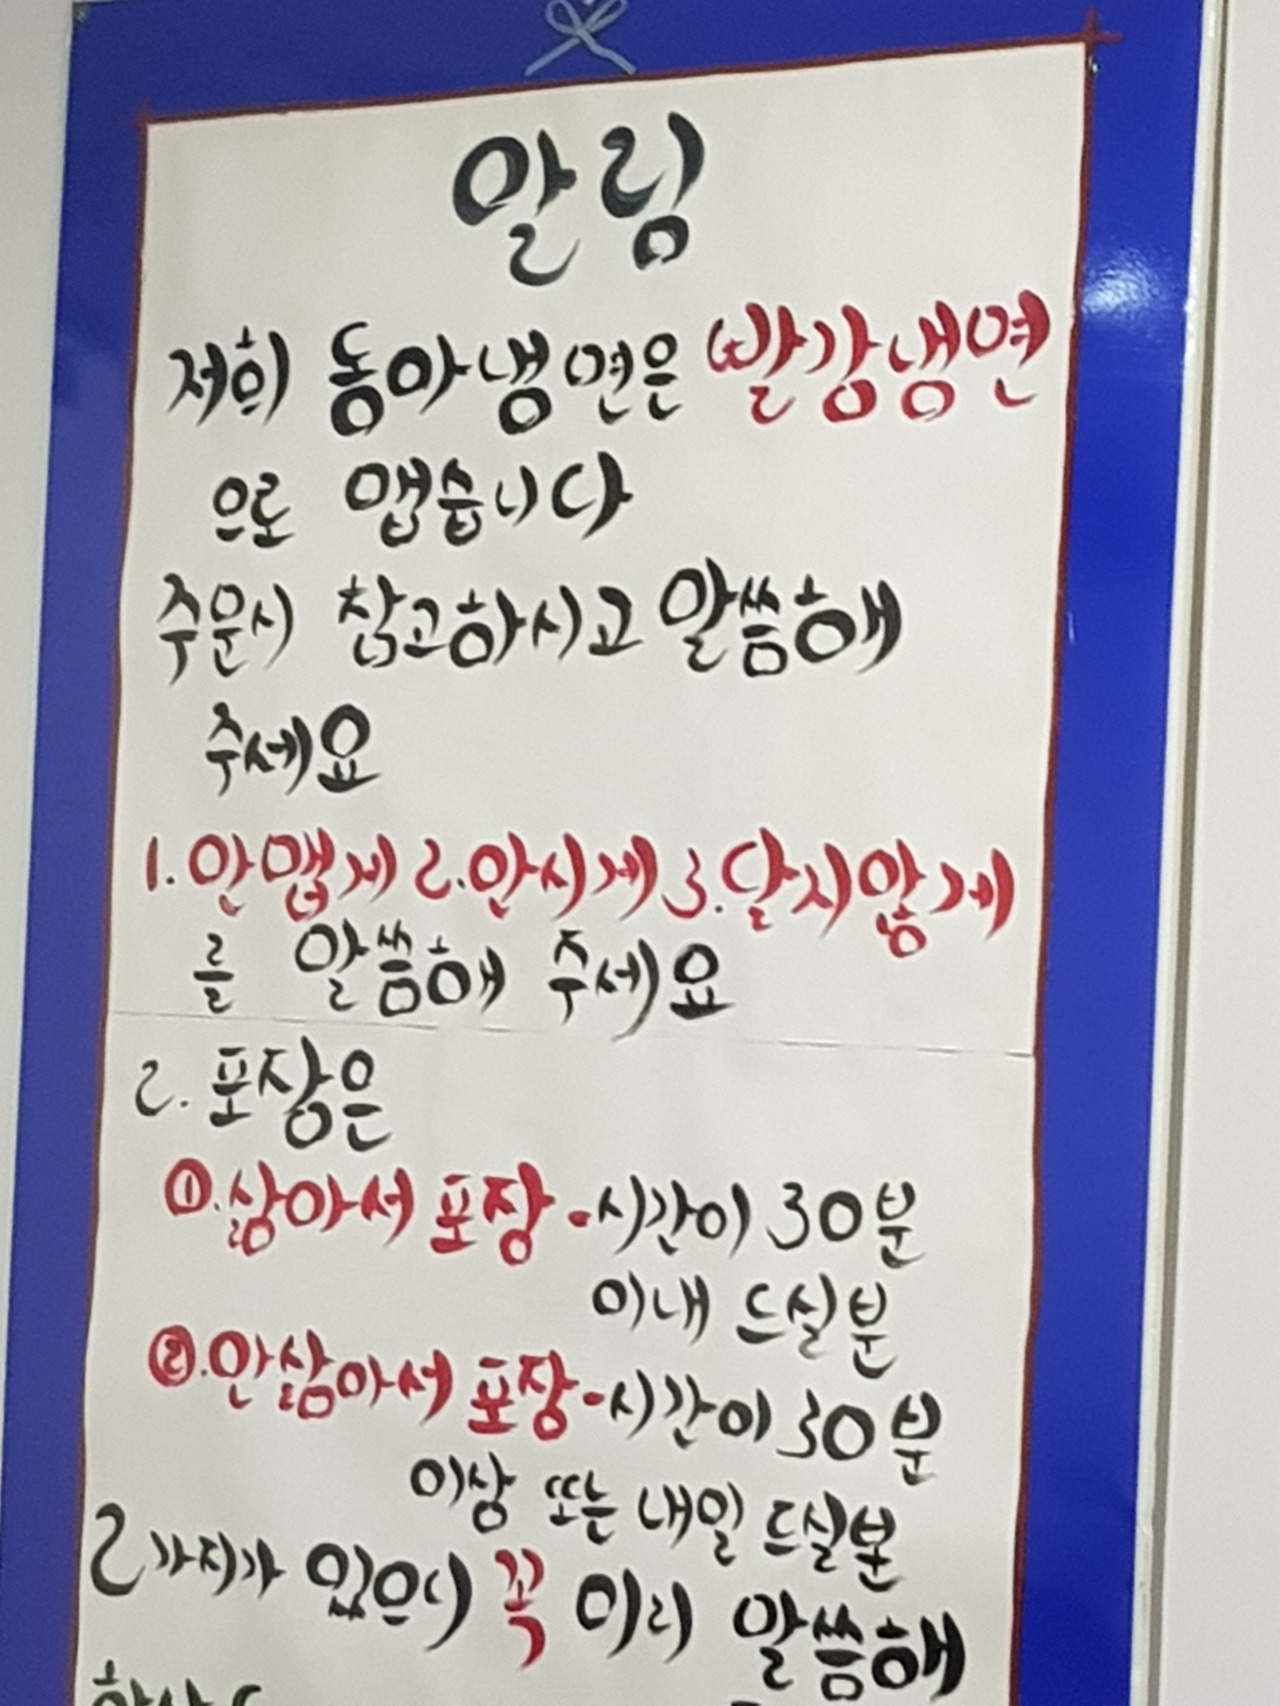 알림
저희 동아냉면은 빨강냉면
으로 맵습니다
주문시 참고하시고 말씀해
주세요
1. 안맵게 2. 안시게 3. 달지않게
를 말씀해 주세요
2. 포장은
①. 삶아서 포장 - 시간이 30분
이내 드실분
②. 안삶아서 포장 - 시간이 30분
이상 또는 내일 드실분
2가지가 있으니 꼭 미리 말씀해